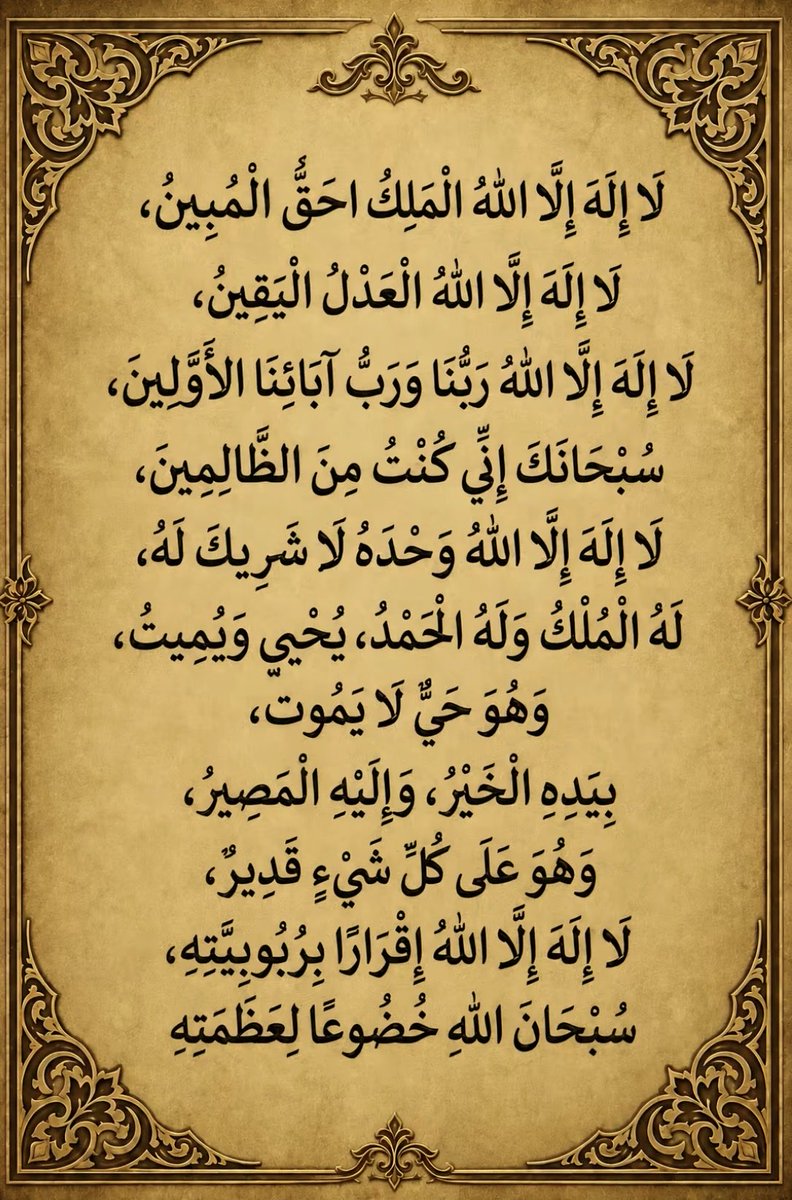 لَا إِلَهَ إِلَّا اللهُ الْمَلِكُ احَقُّ الْمُبِينُ،
لَا إِلَهَ إِلَّا اللهُ الْعَدْلُ الْيَقِينُ،
لَا إِلَهَ إِلَّا اللهُ رَبُّنَا وَرَبُّ آبَائِنَا الأَوَّلِينَ،
سُبْحَانَكَ إِنِّي كُنْتُ مِنَ الظَّالِمِينَ،
لَا إِلَهَ إِلَّا اللهُ وَحْدَهُ لَا شَرِيكَ لَهُ،
لَهُ الْمُلْكُ وَلَهُ الْحَمْدُ، يُحْيي وَيُمِيتُ،
وَهُوَ حَيٌّ لَا يَمُوتّ،
بِيَدِهِ الْخَيْرُ، وَإِلَيْهِ الْمَصِيرُ،
وَهُوَ عَلَى كُلِّ شَيْءٍ قَدِيرٌ،
لَا إِلَهَ إِلَّا اللهُ إِقْرَارًا بِرُبُوبِيَّتِهِ،
سُبْحَانَ اللهِ خُضُوعًا لِعَظَمَتِهِ